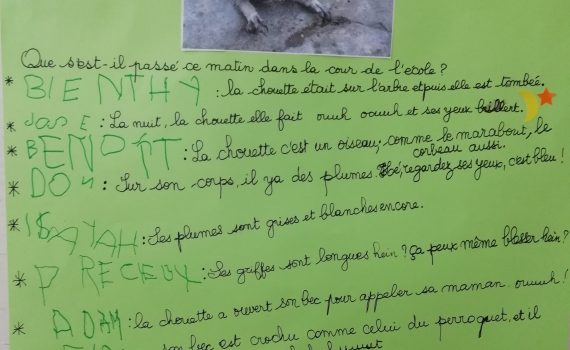 Que s'est-il passé ce matin dans la cour de l'école ?
* BIENTHY : la chouette était sur l'arbre et puis elle est tombée.
* JOSE : La nuit, la chouette elle fait ouuh ouuuh et ses yeux brillent.
* BENOIT : La chouette c'est un oiseau, comme le marabout, le
corbeau aussi.
* DON : Sur son corps, il ya des plumes. Hé, regardez ses yeux, c'est bleu !
* ISAYAH : Les plumes sont grises et blanches encore.
* PRECEUX : Les griffes sont longues hein ? ça peux même blesser hein ?
* ADAM : la chouette a ouvert son bec pour appeler sa maman. ouuuh !
son bec est crochu comme celui du perroquet, et il